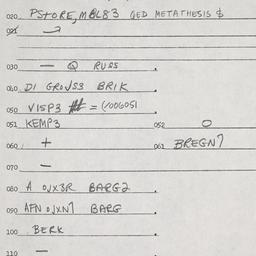 020 PSTORE, MBL83 QED METATHESIS $
021 →
030 — Q RUSS .
040 DI GROJS3 BRIK .
050 VISP3 # = (/006051
051 KEMP3 052 O
060 + 061 BREGN7
070 —
080 A OJX3R BARG2 .
090 AFNOJXN7 BARG .
100 BERK .
110 —